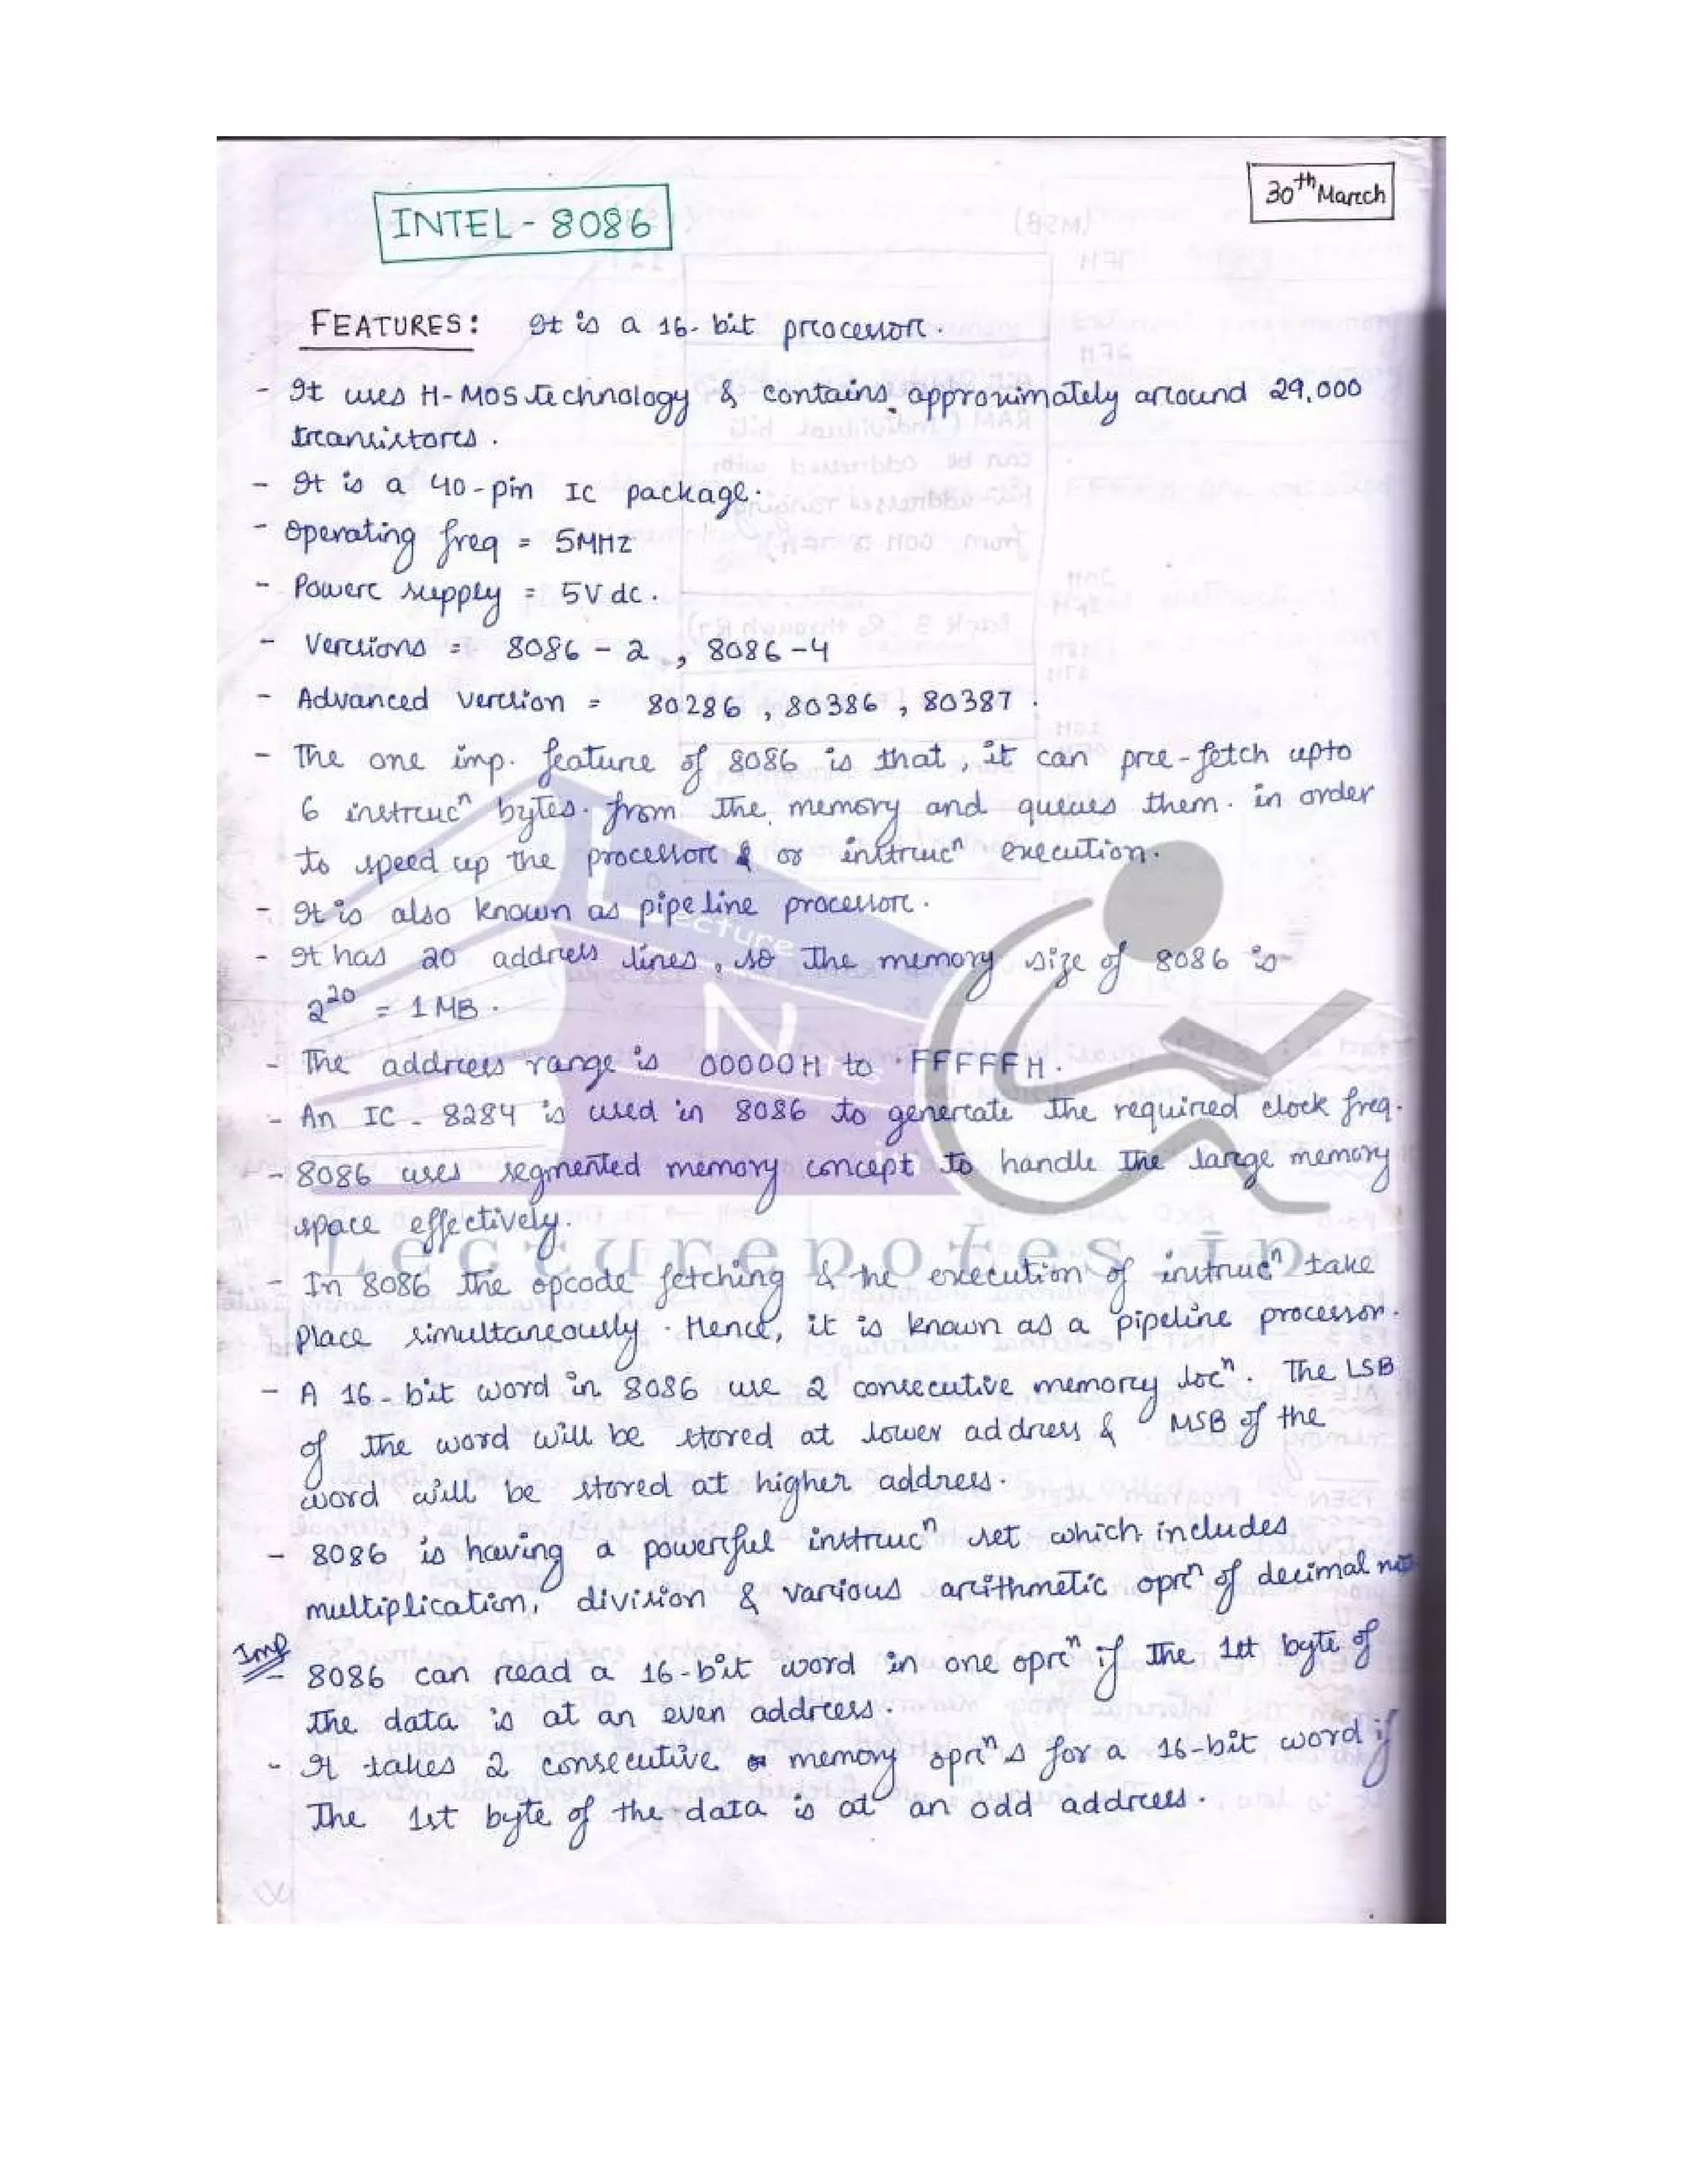 30th March
INTEL - 8086
FEATURES: It is a 16-bit processor.
- It uses H-MOS technology & contains approximately around 29,000
transistors.
- It is a 40-pin IC package.
- Operating freq = 5MHz
- Power supply = 5V dc.
- Versions = 8086 - 2, 8086 - 4
- Advanced version = 80286, 80386, 80387.
- The one imp. feature of 8086 is that, it can pre-fetch upto
6 instrucn bytes. from the memory and queues them. in order
to speed up the processor & or instrucn execution.
- It is also known as pipe line processor.
- It has 20 address lines, so the memory size of 8086 is
2^20 = 1 MB.
- The address range is 00000H to FFFFFH.
- An IC - 8284 is used in 8086 to generate the required clock freq.
- 8086 uses segmented memory concept to handle the large memory
space effectively.
- In 8086 the opcode fetching & the execution of instrucn take
place simultaneously. Hence, it is known as a pipeline processor.
- A 16-bit word in 8086 use 2 consecutive memory locn. The LSB
of the word will be stored at lower address & MSB of the
word will be stored at higher address.
- 8086 is having a powerful instrucn set which includes
multiplication, division & various arithmetic oprn of decimal nos
Imp
- 8086 can read a 16-bit word in one oprn if the 1st byte of
the data is at an even address.
- It takes 2 consecutive memory oprns for a 16-bit word if
the 1st byte of the data is at an odd address.
Lecture Notes.in
Lecturenotes.in